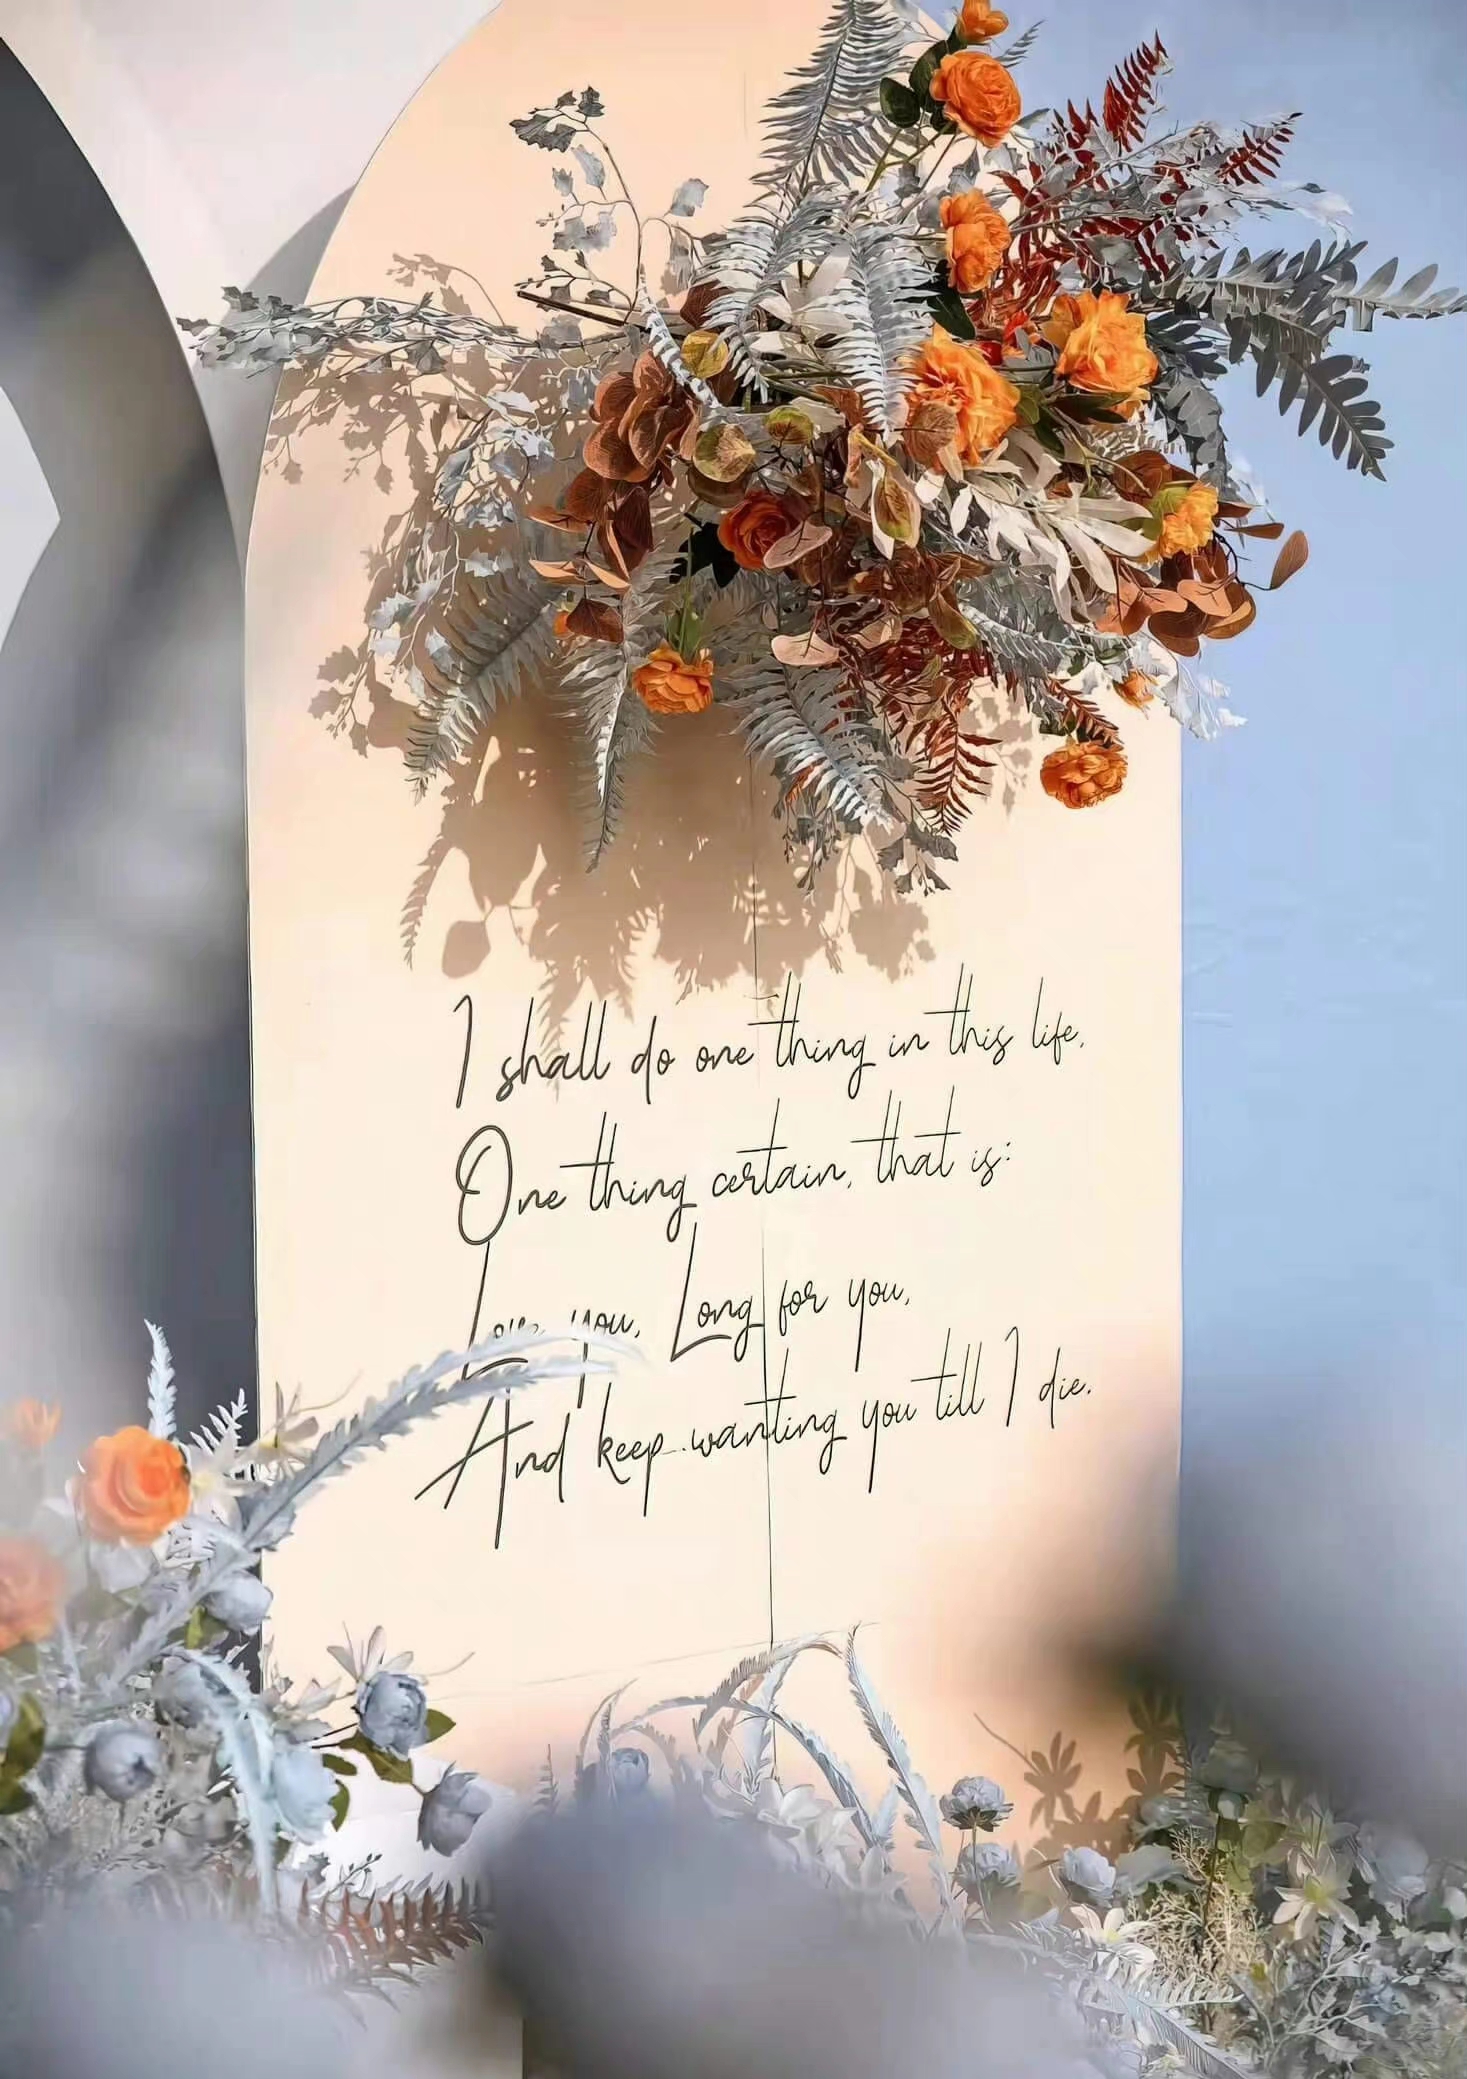 I shall do one thing in this life,
One thing certain, that is:
Love you, Long for you,
And keep wanting you till I die.